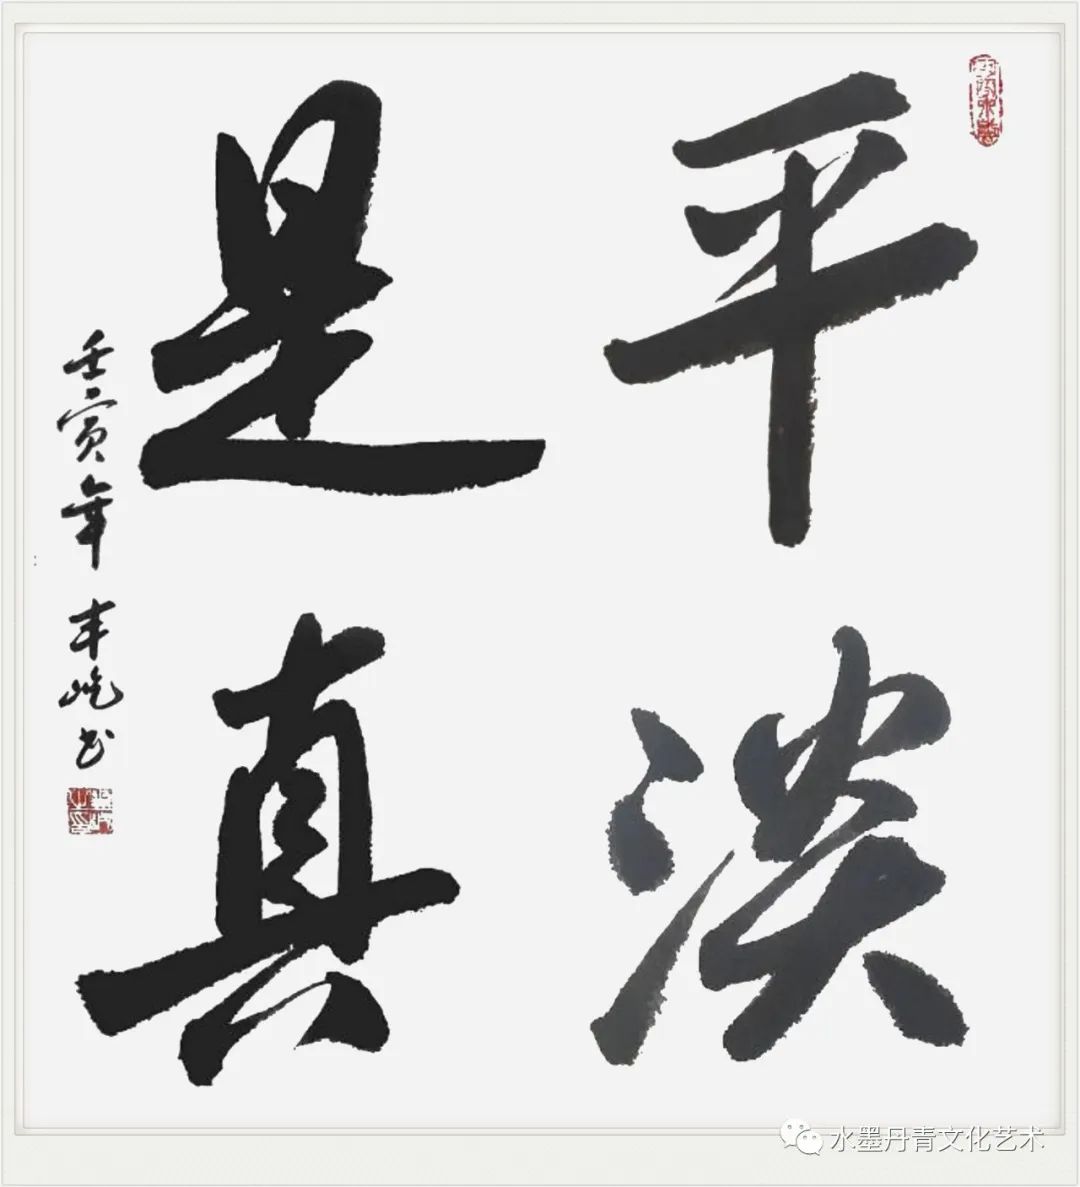 平淡
是真
壬寅年 丰屹书
水墨丹青文化艺术